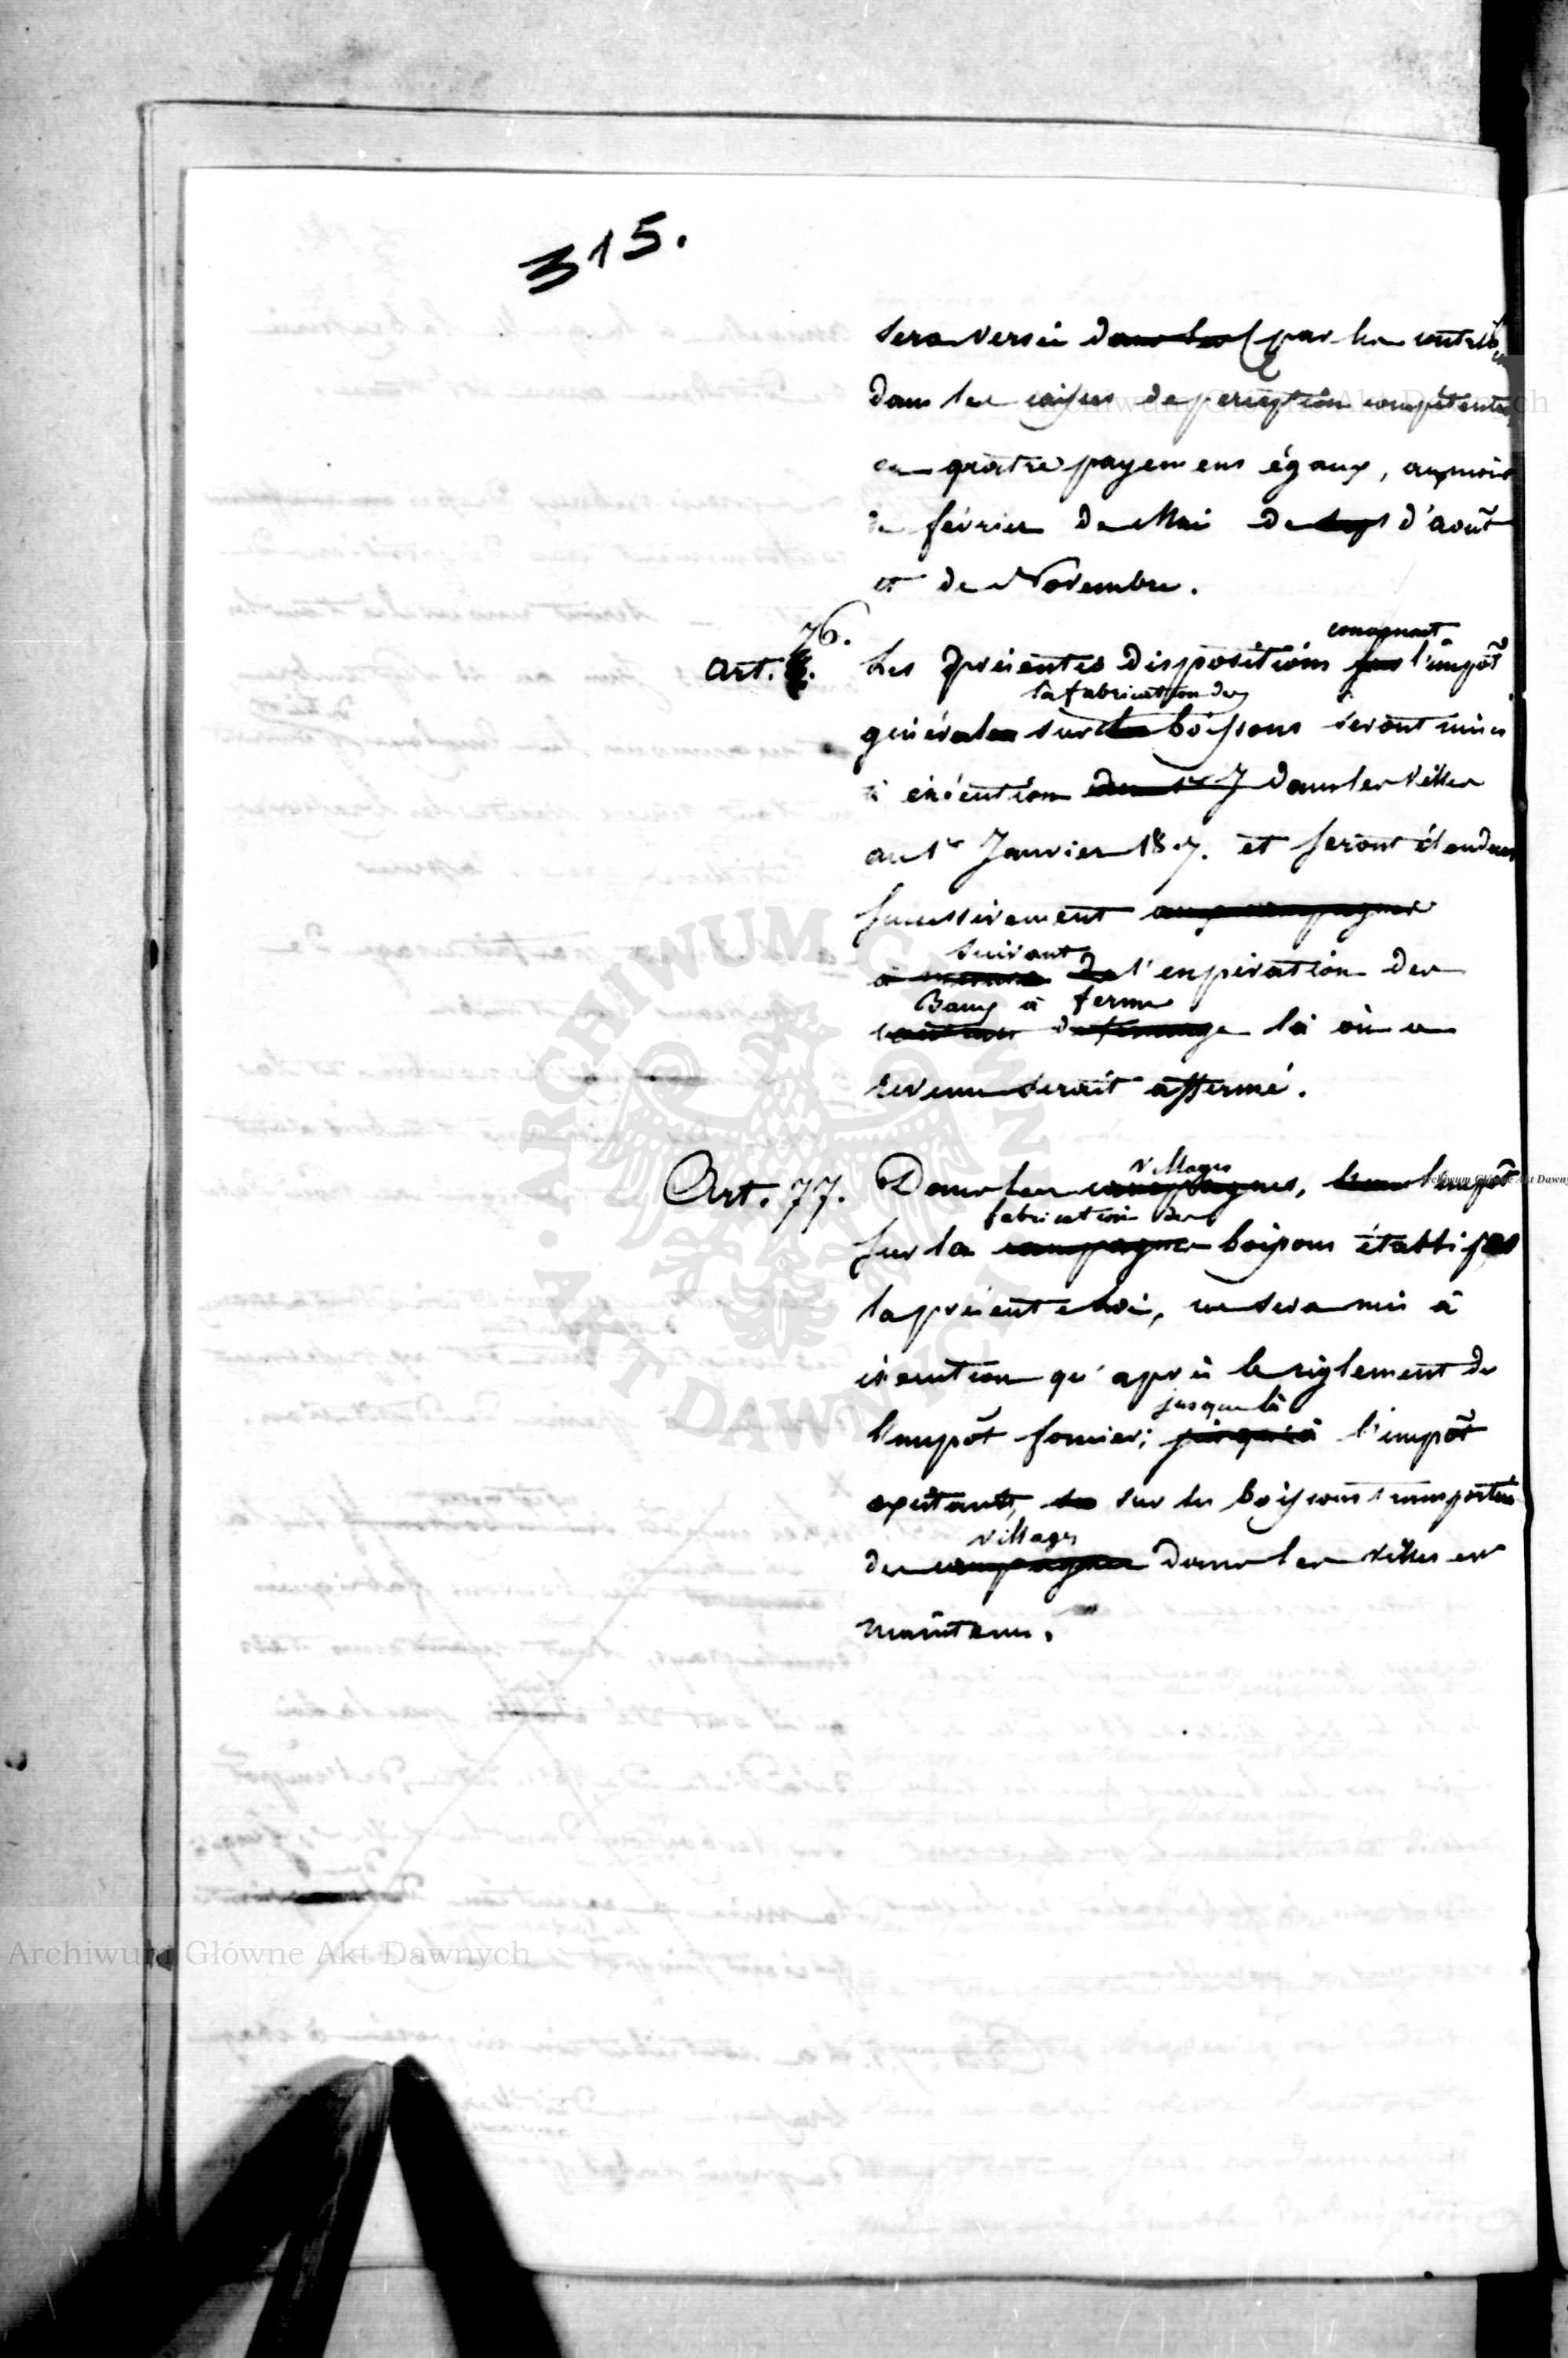 315.
sera versée dans les par les contrib
dans les caisses de perception compétentes,
en quatre payemens égaux, aux mois
de février de Mai de d'août
et de Novembre.
76.
concernant
Art. Les présentes dispositions l'impôt
la fabrication des
générales sur les boissons seront mises
à exécution dans les villes
au 1er Janvier 18 7. et seront étendues
successivement aux campagnes
suivant
à mesure de l'expiration des
Baux à ferme
de fermage là où ce
revenu serait affermé.
villages
Art. 77. Dans les campagnes, l'impôt
fabrication des
sur la campagne boissons établi par
la présente loi, ne sera mis à
exécution qu'après le règlement de
jusque là
l'impôt foncier; jusqu'à l'impôt
existant, sur les boissons transportées
villages
des campagnes dans les villes est
maintenu.
Archiwum Główne Akt Dawnych